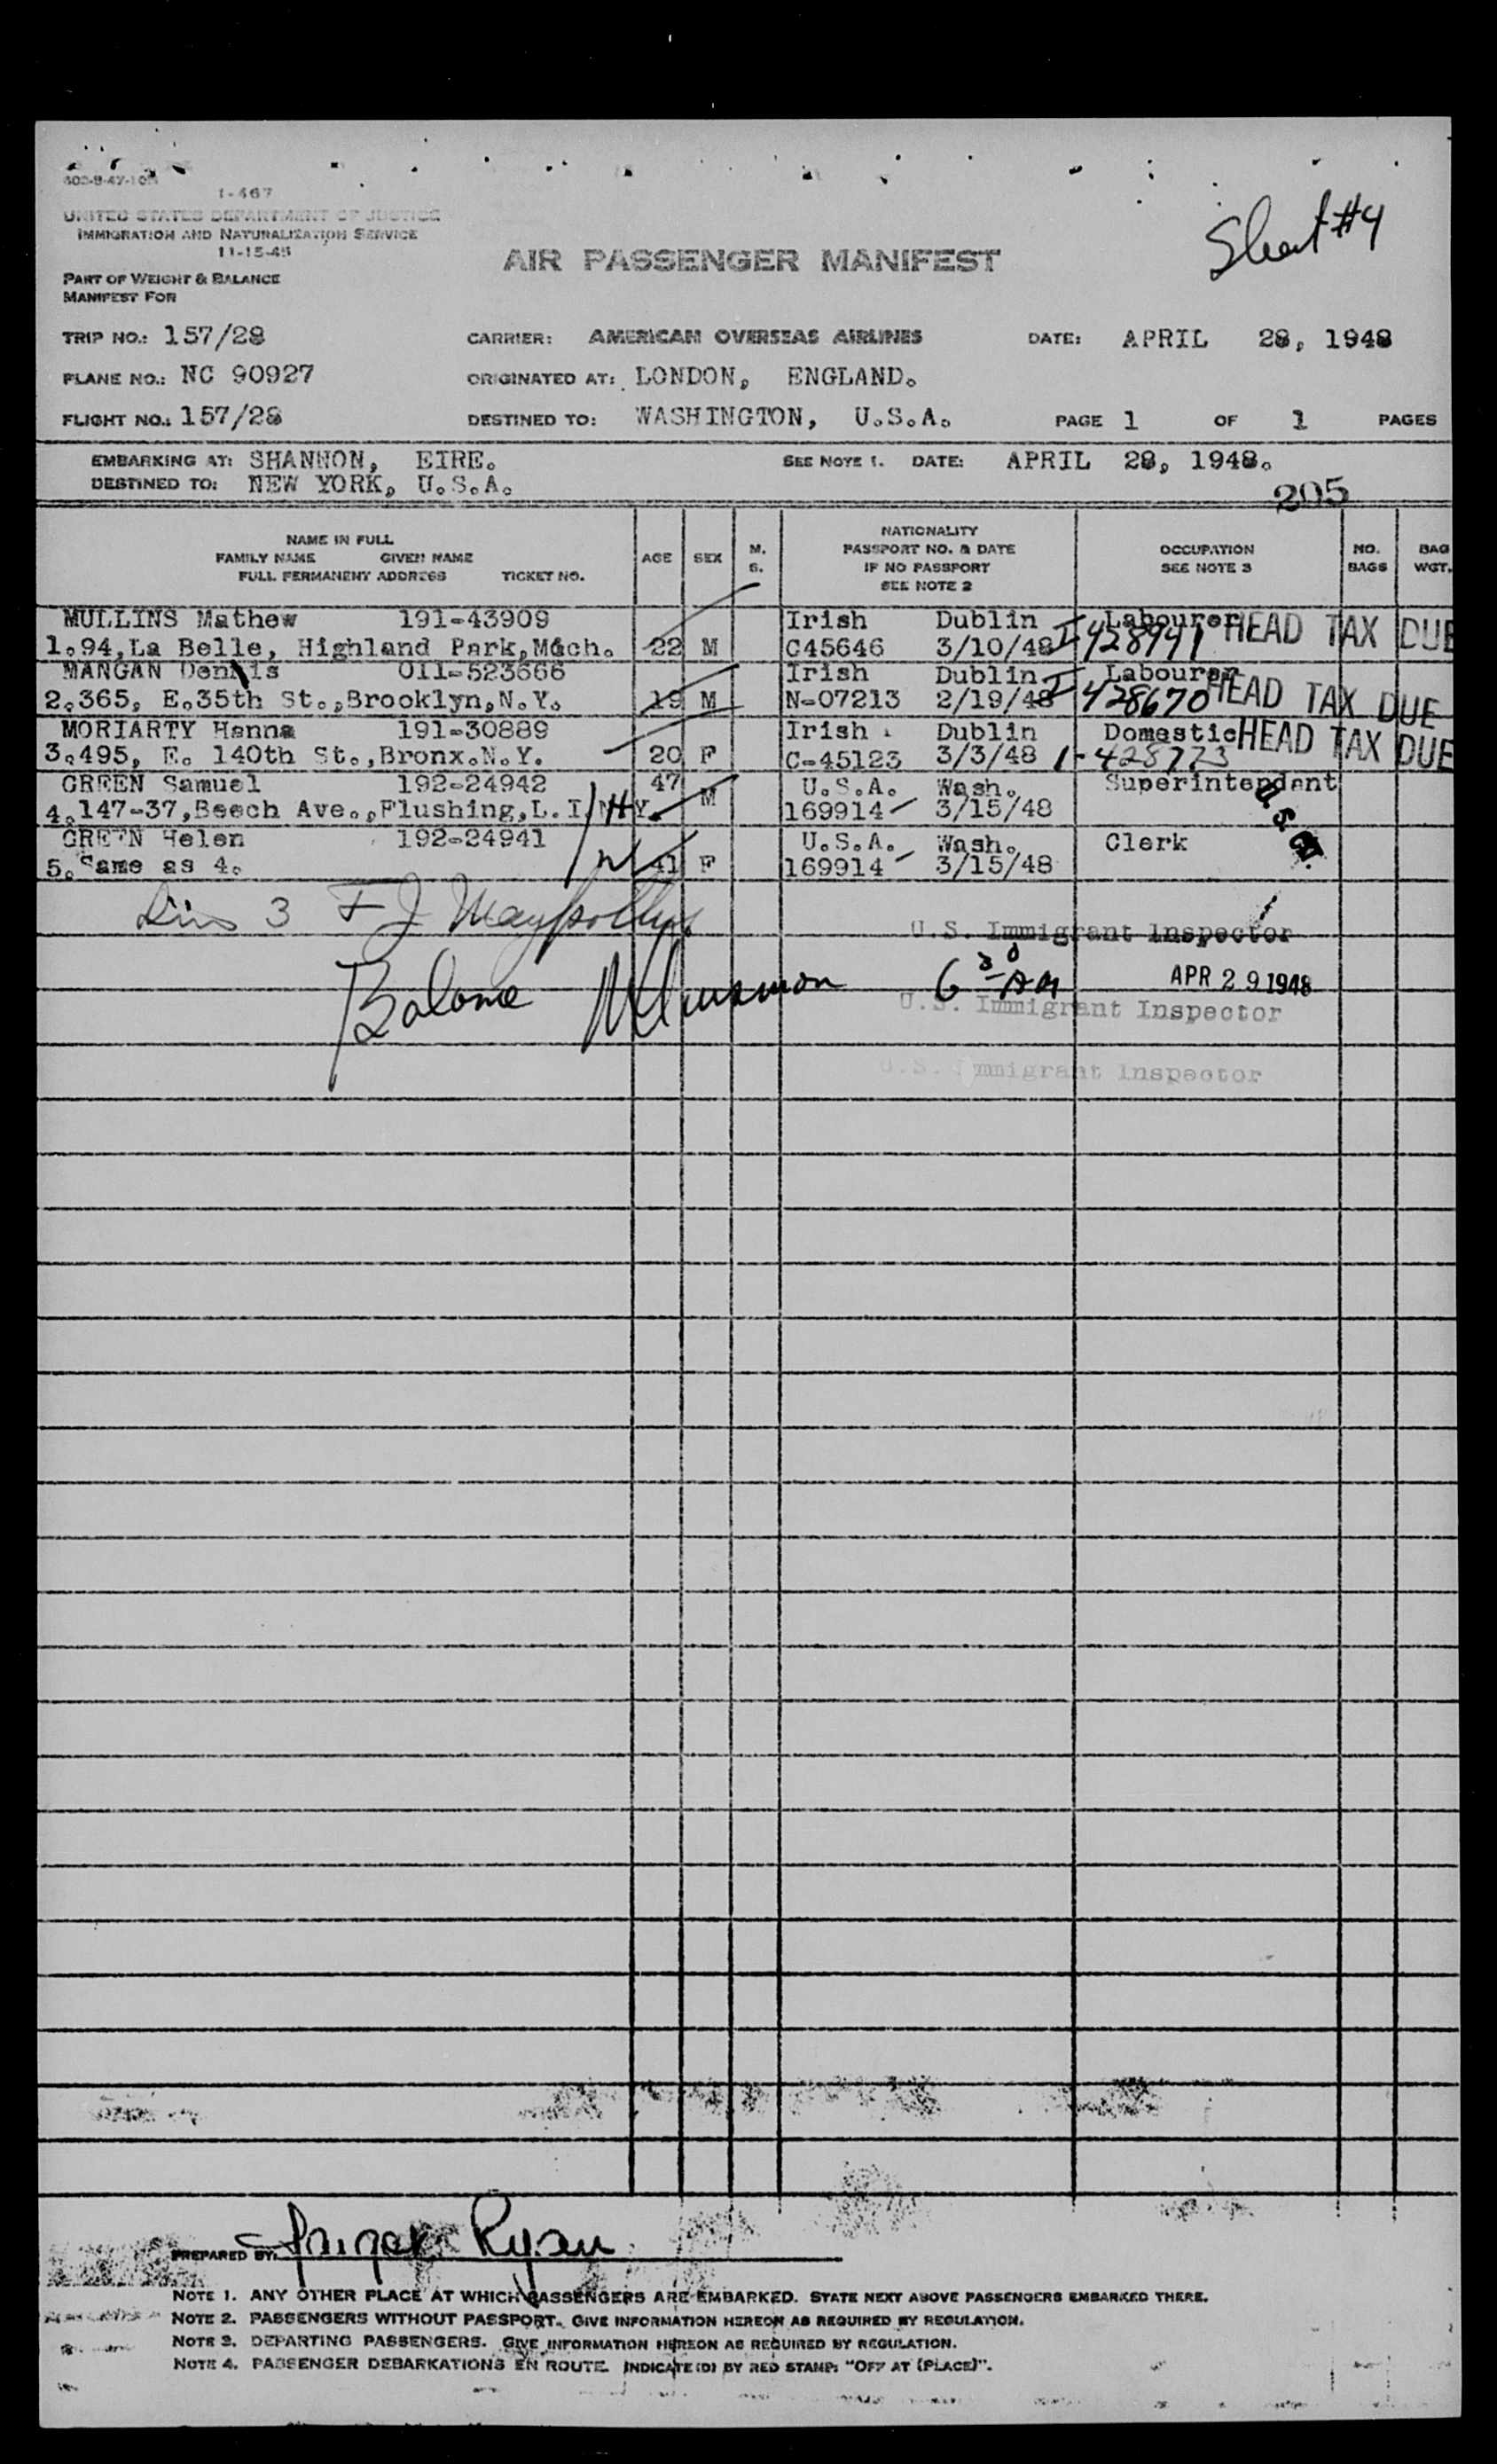 1-467
UNITED STATES DEPARTMENT OF JUSTICE
IMMIGRATION AND NATURALIZATION SERVICE
11-15-45
AIR PASSENGER MANIFEST
Sheet #4
PART OF WEIGHT & BALANCE
MANIFEST FOR
TRIP NO.: 157/28 CARRIER: AMERICAN OVERSEAS AIRLINES DATE: APRIL 28, 1948
PLANE NO.: NC 90927 ORIGINATED AT: LONDON, ENGLAND.
FLIGHT NO.: 157/28 DESTINED TO: WASHINGTON, U.S.A. PAGE 1 OF 1 PAGES
EMBARKING AT: SHANNON, EIRE. SEE NOTE 1. DATE: APRIL 28, 1948.
DESTINED TO: NEW YORK, U.S.A.
205
NAME IN FULL
FAMILY NAME GIVEN NAME
FULL PERMANENT ADDRESS TICKET NO.
AGE SEX M. S.
NATIONALITY
PASSPORT NO. & DATE
IF NO PASSPORT
SEE NOTE 2
OCCUPATION
SEE NOTE 3
NO. BAGS
BAG WGT.
MULLINS Mathew 191-43909 Irish Dublin Labourer HEAD TAX DUE
1.94,La Belle, Highland Park,Mich. 22 M C45646 3/10/48 I-428941
MANGAN Dennis 011-523666 Irish Dublin Labourer HEAD TAX DUE
2.365, E.35th St.,Brooklyn,N.Y. 19 M N-07213 2/19/48 I-428670
MORIARTY Hanna 191-30889 Irish Dublin Domestic HEAD TAX DUE
3.495, E. 140th St.,Bronx.N.Y. 20 F C-45123 3/3/48 1-428773
GREEN Samuel 192-24942 47 M U.S.A. Wash. Superintendant
4.147-37,Beech Ave.,Flushing,L.I.N.Y. 169914 3/15/48
GREEN Helen 192-24941 U.S.A. Wash. Clerk
5.Same as 4. 41 F 169914 3/15/48
U.S. Immigrant Inspector
6 30 AM APR 29 1948
U.S. Immigrant Inspector
U.S. Immigrant Inspector
PREPARED BY: Ryan
NOTE 1. ANY OTHER PLACE AT WHICH PASSENGERS ARE EMBARKED. STATE NEXT ABOVE PASSENGERS EMBARKED THERE.
NOTE 2. PASSENGERS WITHOUT PASSPORT. GIVE INFORMATION HEREON AS REQUIRED BY REGULATION.
NOTE 3. DEPARTING PASSENGERS. GIVE INFORMATION HEREON AS REQUIRED BY REGULATION.
NOTE 4. PASSENGER DEBARKATIONS EN ROUTE. INDICATE (D) BY RED STAMP: "OFF AT (PLACE)".